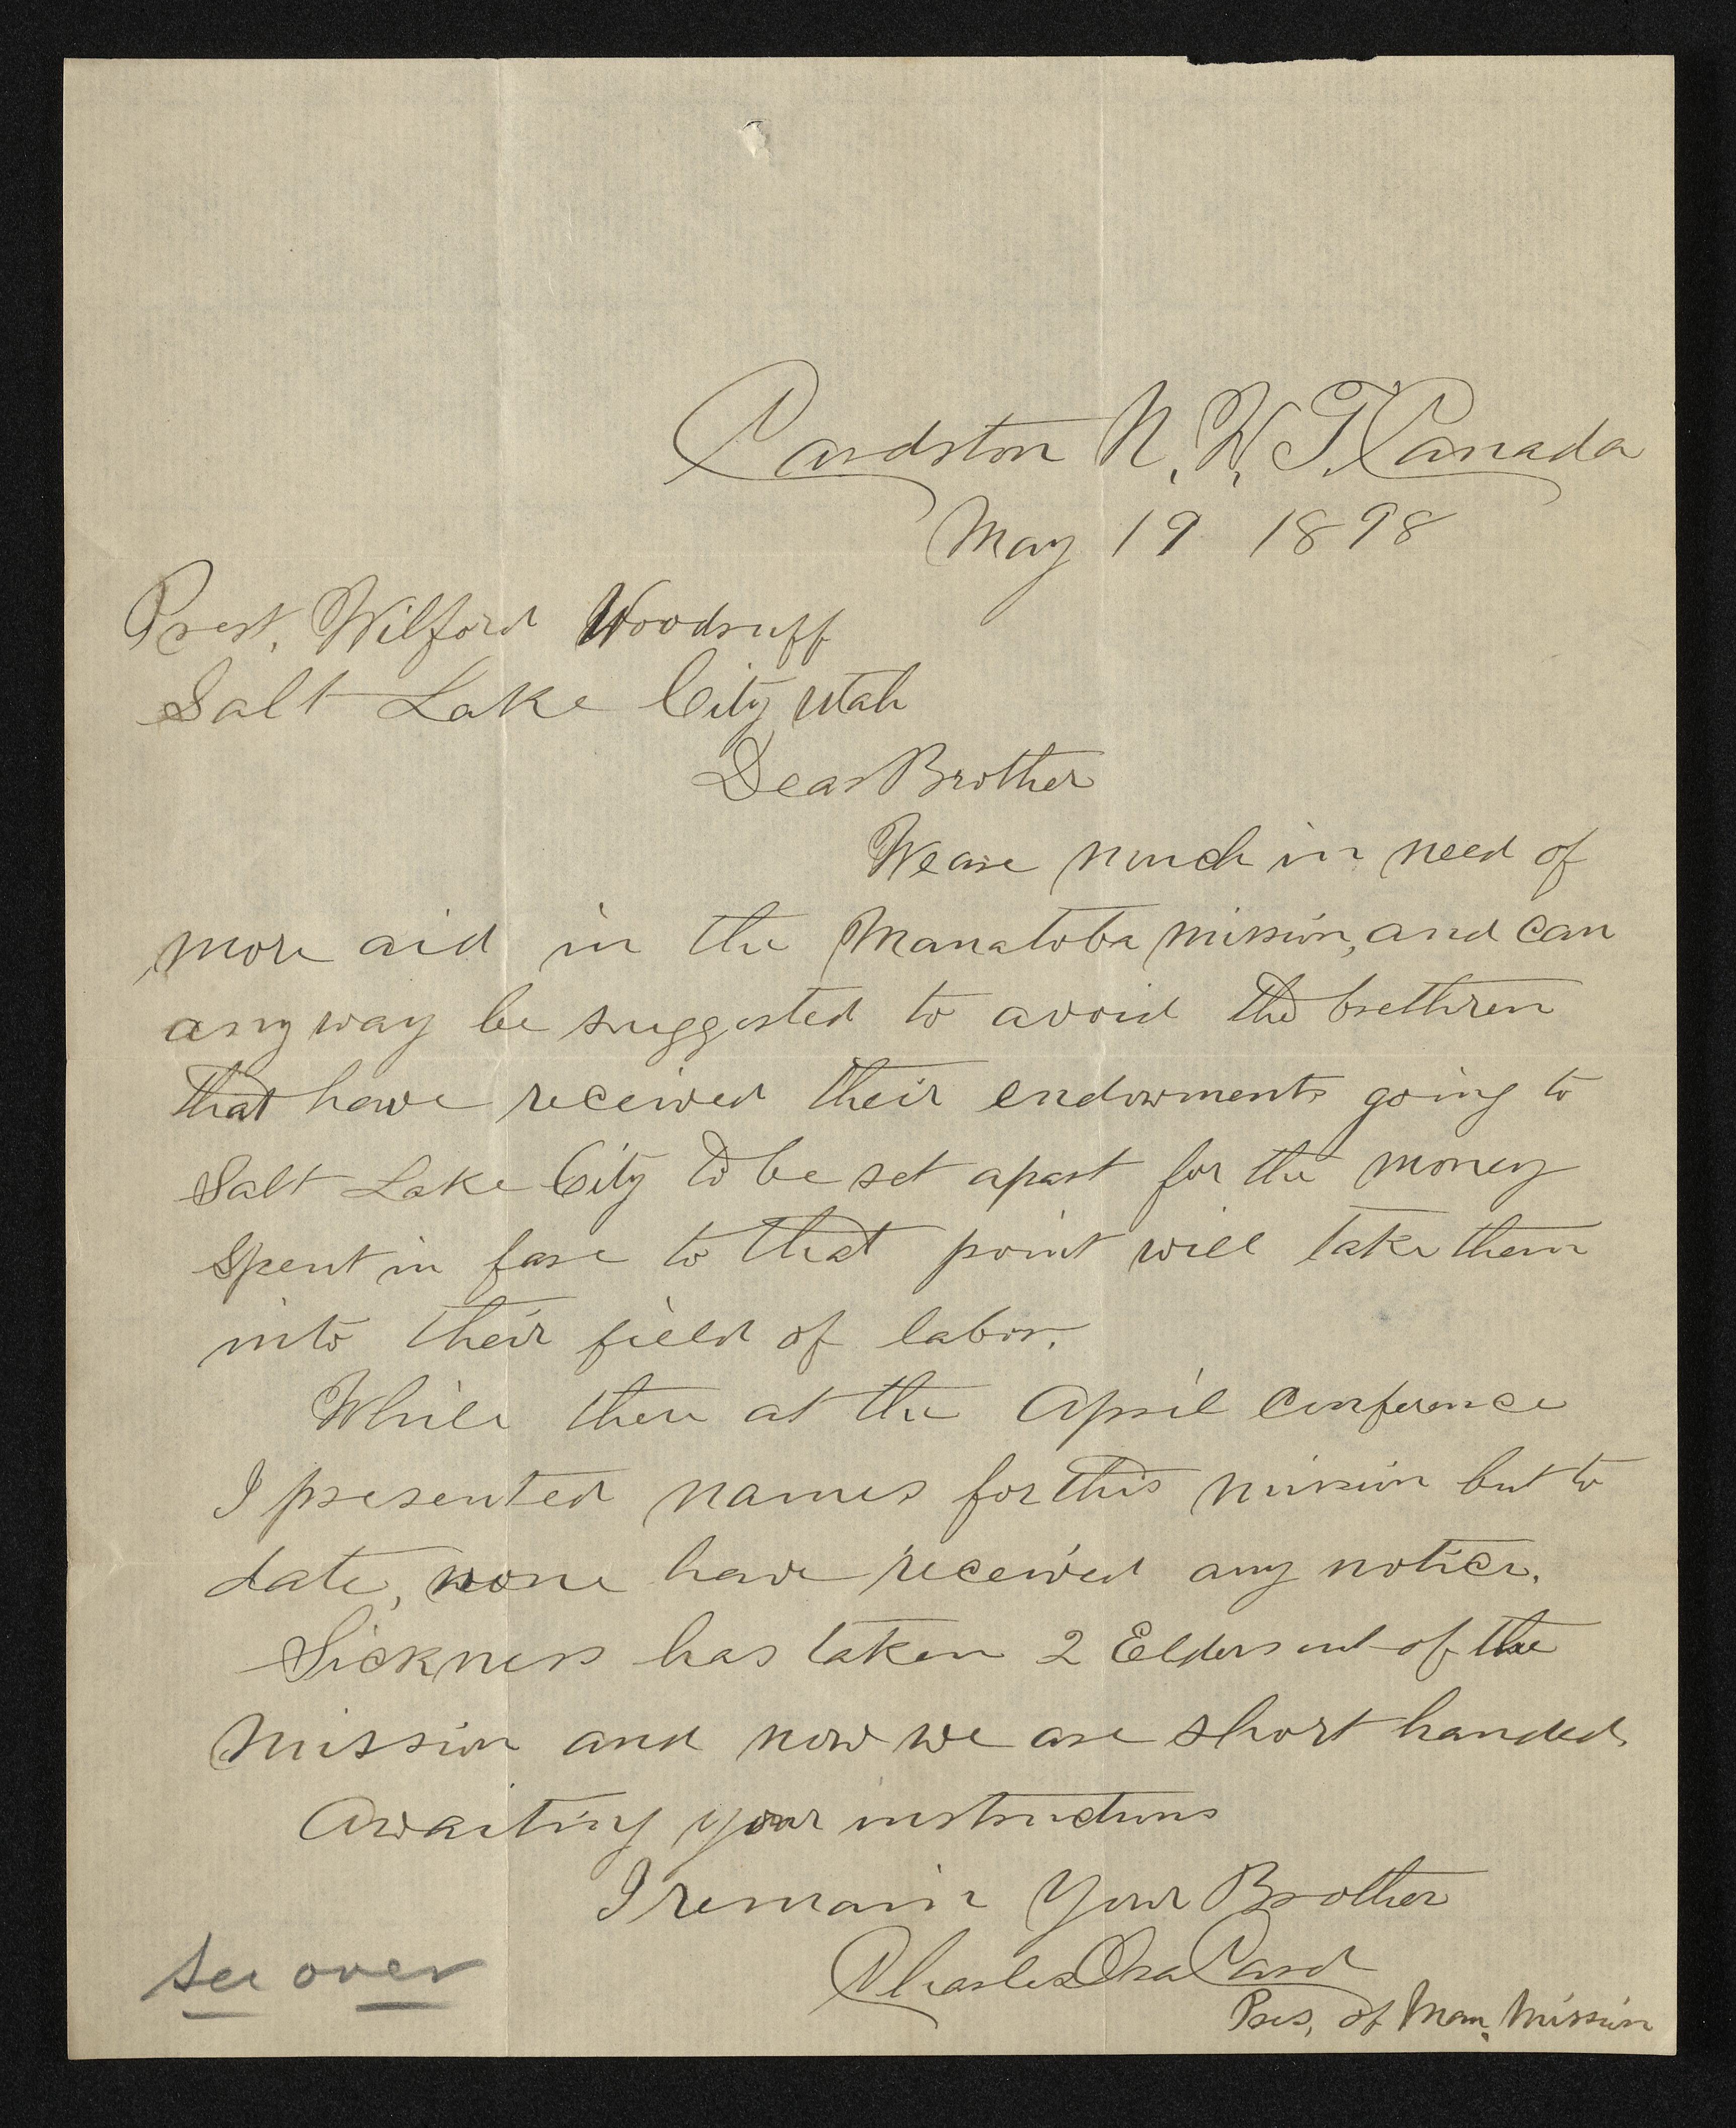 Cardston N. W. T. Canada
May 19 1898
Prest. Wilford Woodruff
Salt Lake City Utah
Dear Brother
We are much in need of
more aid in the Manatoba mission, and can
any way be suggested to avoid the brethren
that have received their endowments going to
Salt Lake City to be set apart for the money
spent in fare to that point will take them
into their field of labor.
While there at the April Conference
I presented names for this mission but to
date, none have received any notice.
Sickness has taken 2 Elders out of the
Mission and now we are short handed.
Awaiting your instructions
I remain Your Brother
Charles Ora Card
Pres. of Man. Mission
See over